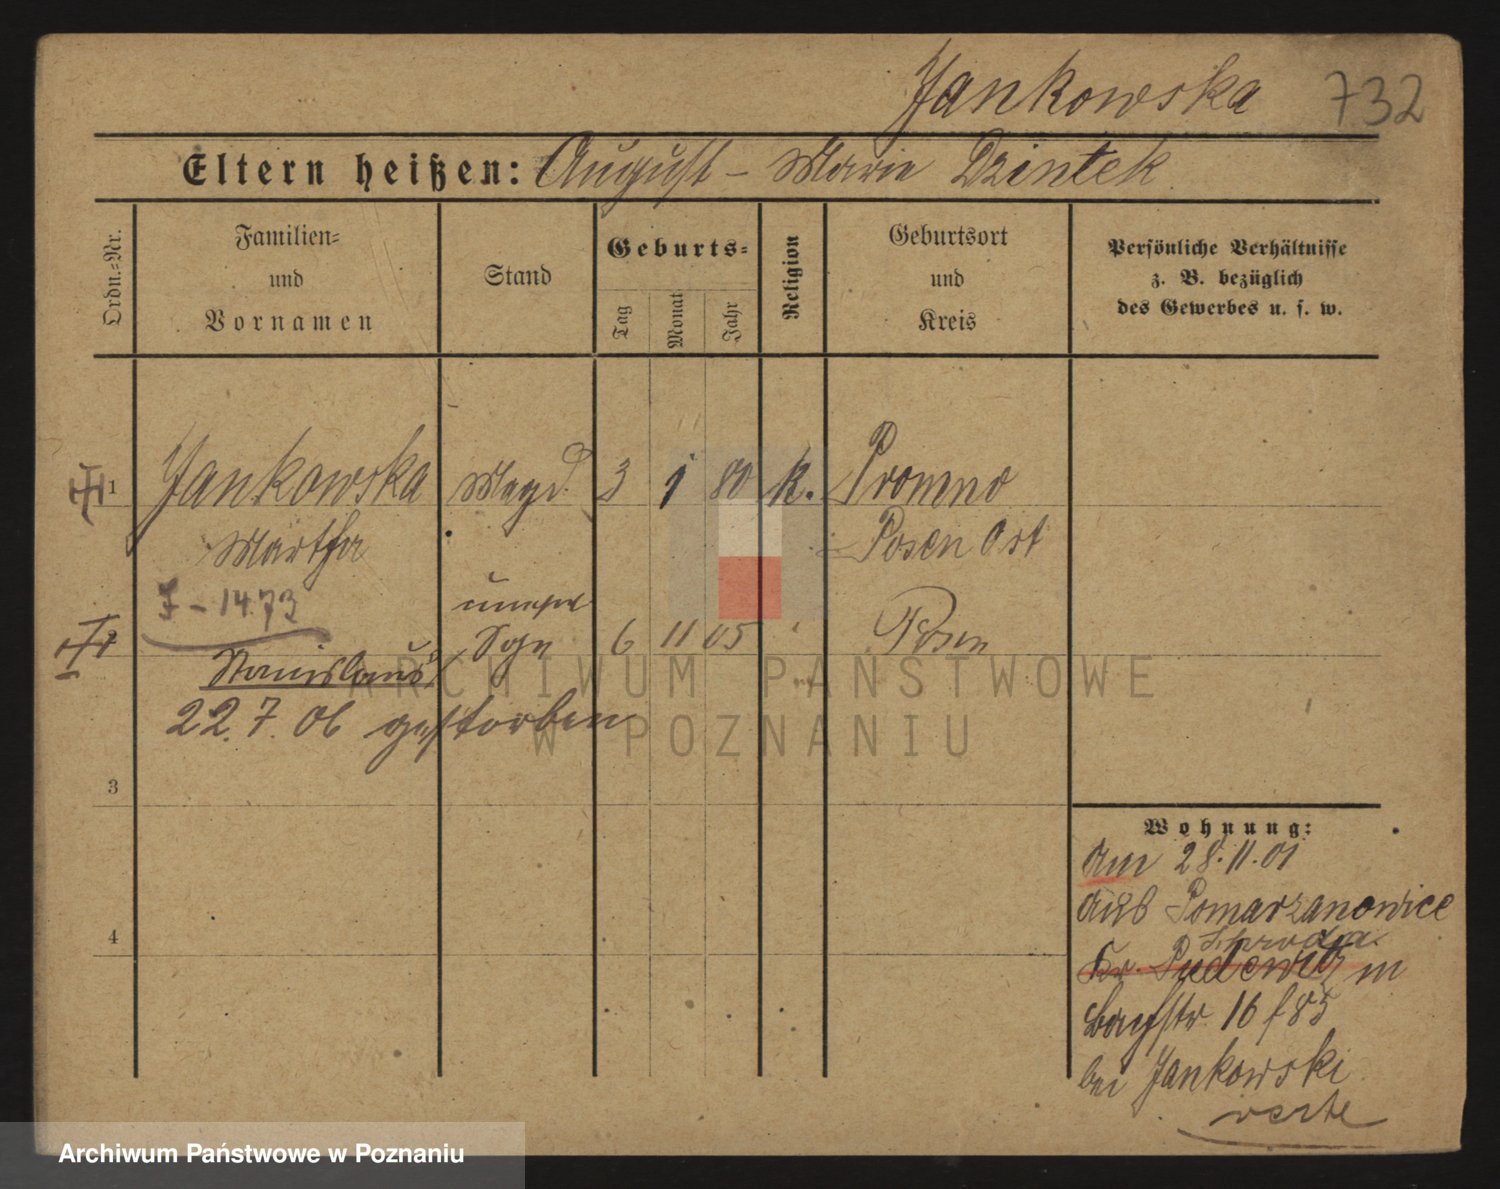 Jankowska 732
Eltern heißen: August - Marie Dzintek
Ordn.=Nr.
Familien=
und
Vornamen
Stand
Geburts=
Tag
Monat
Jahr
Religion
Geburtsort
und
Kreis
Persönliche Verhältnisse
z. B. bezüglich
des Gewerbes u. s. w.
1 Jankowska Magd 3 1 80 k. Promno
Martha Posen Ost
J - 1473
2 Sohn 6 11 05 Posen
Stanislaus
22.7.06 gestorben
3
4
Wohnung:
Am 28.11.01
aus Pomarzanowice
Schroda
Kr. Pudewitz in
16 f 85
bei Jankowski
verte
ARCHIWUM PAŃSTWOWE
W POZNANIU
Archiwum Państwowe w Poznaniu